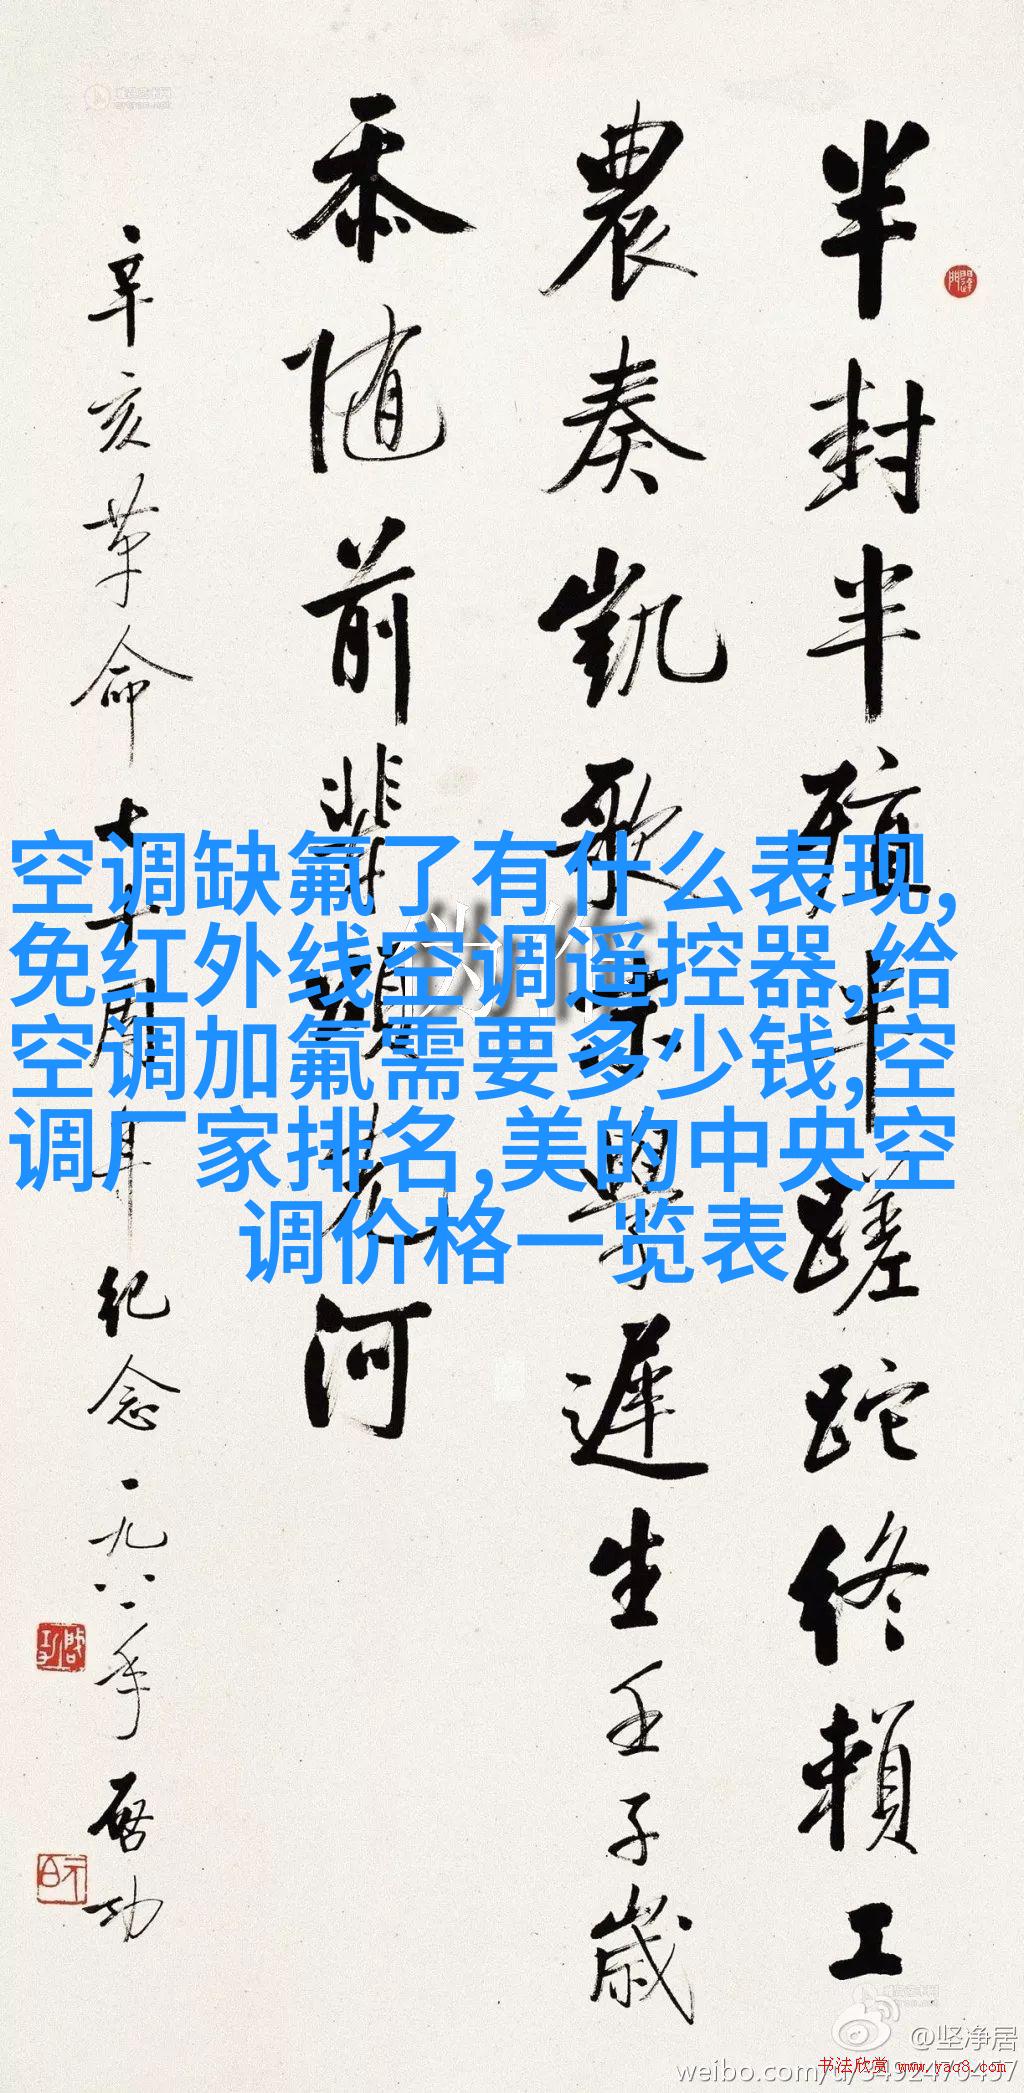 半封半殖半蹉跎终赖工
農奏凯歌
遲生壬子歲
忝随前輩
河
辛亥革命七十周年纪念一九八一年
启功
空调缺氟了有什么表现,
免红外线空调遥控器,给
空调加氟需要多少钱,空
调厂家排名,美的中央空
调价格一览表
@坚净居
weibo.com/u/3492470437
书法欣赏 www.yac8.com